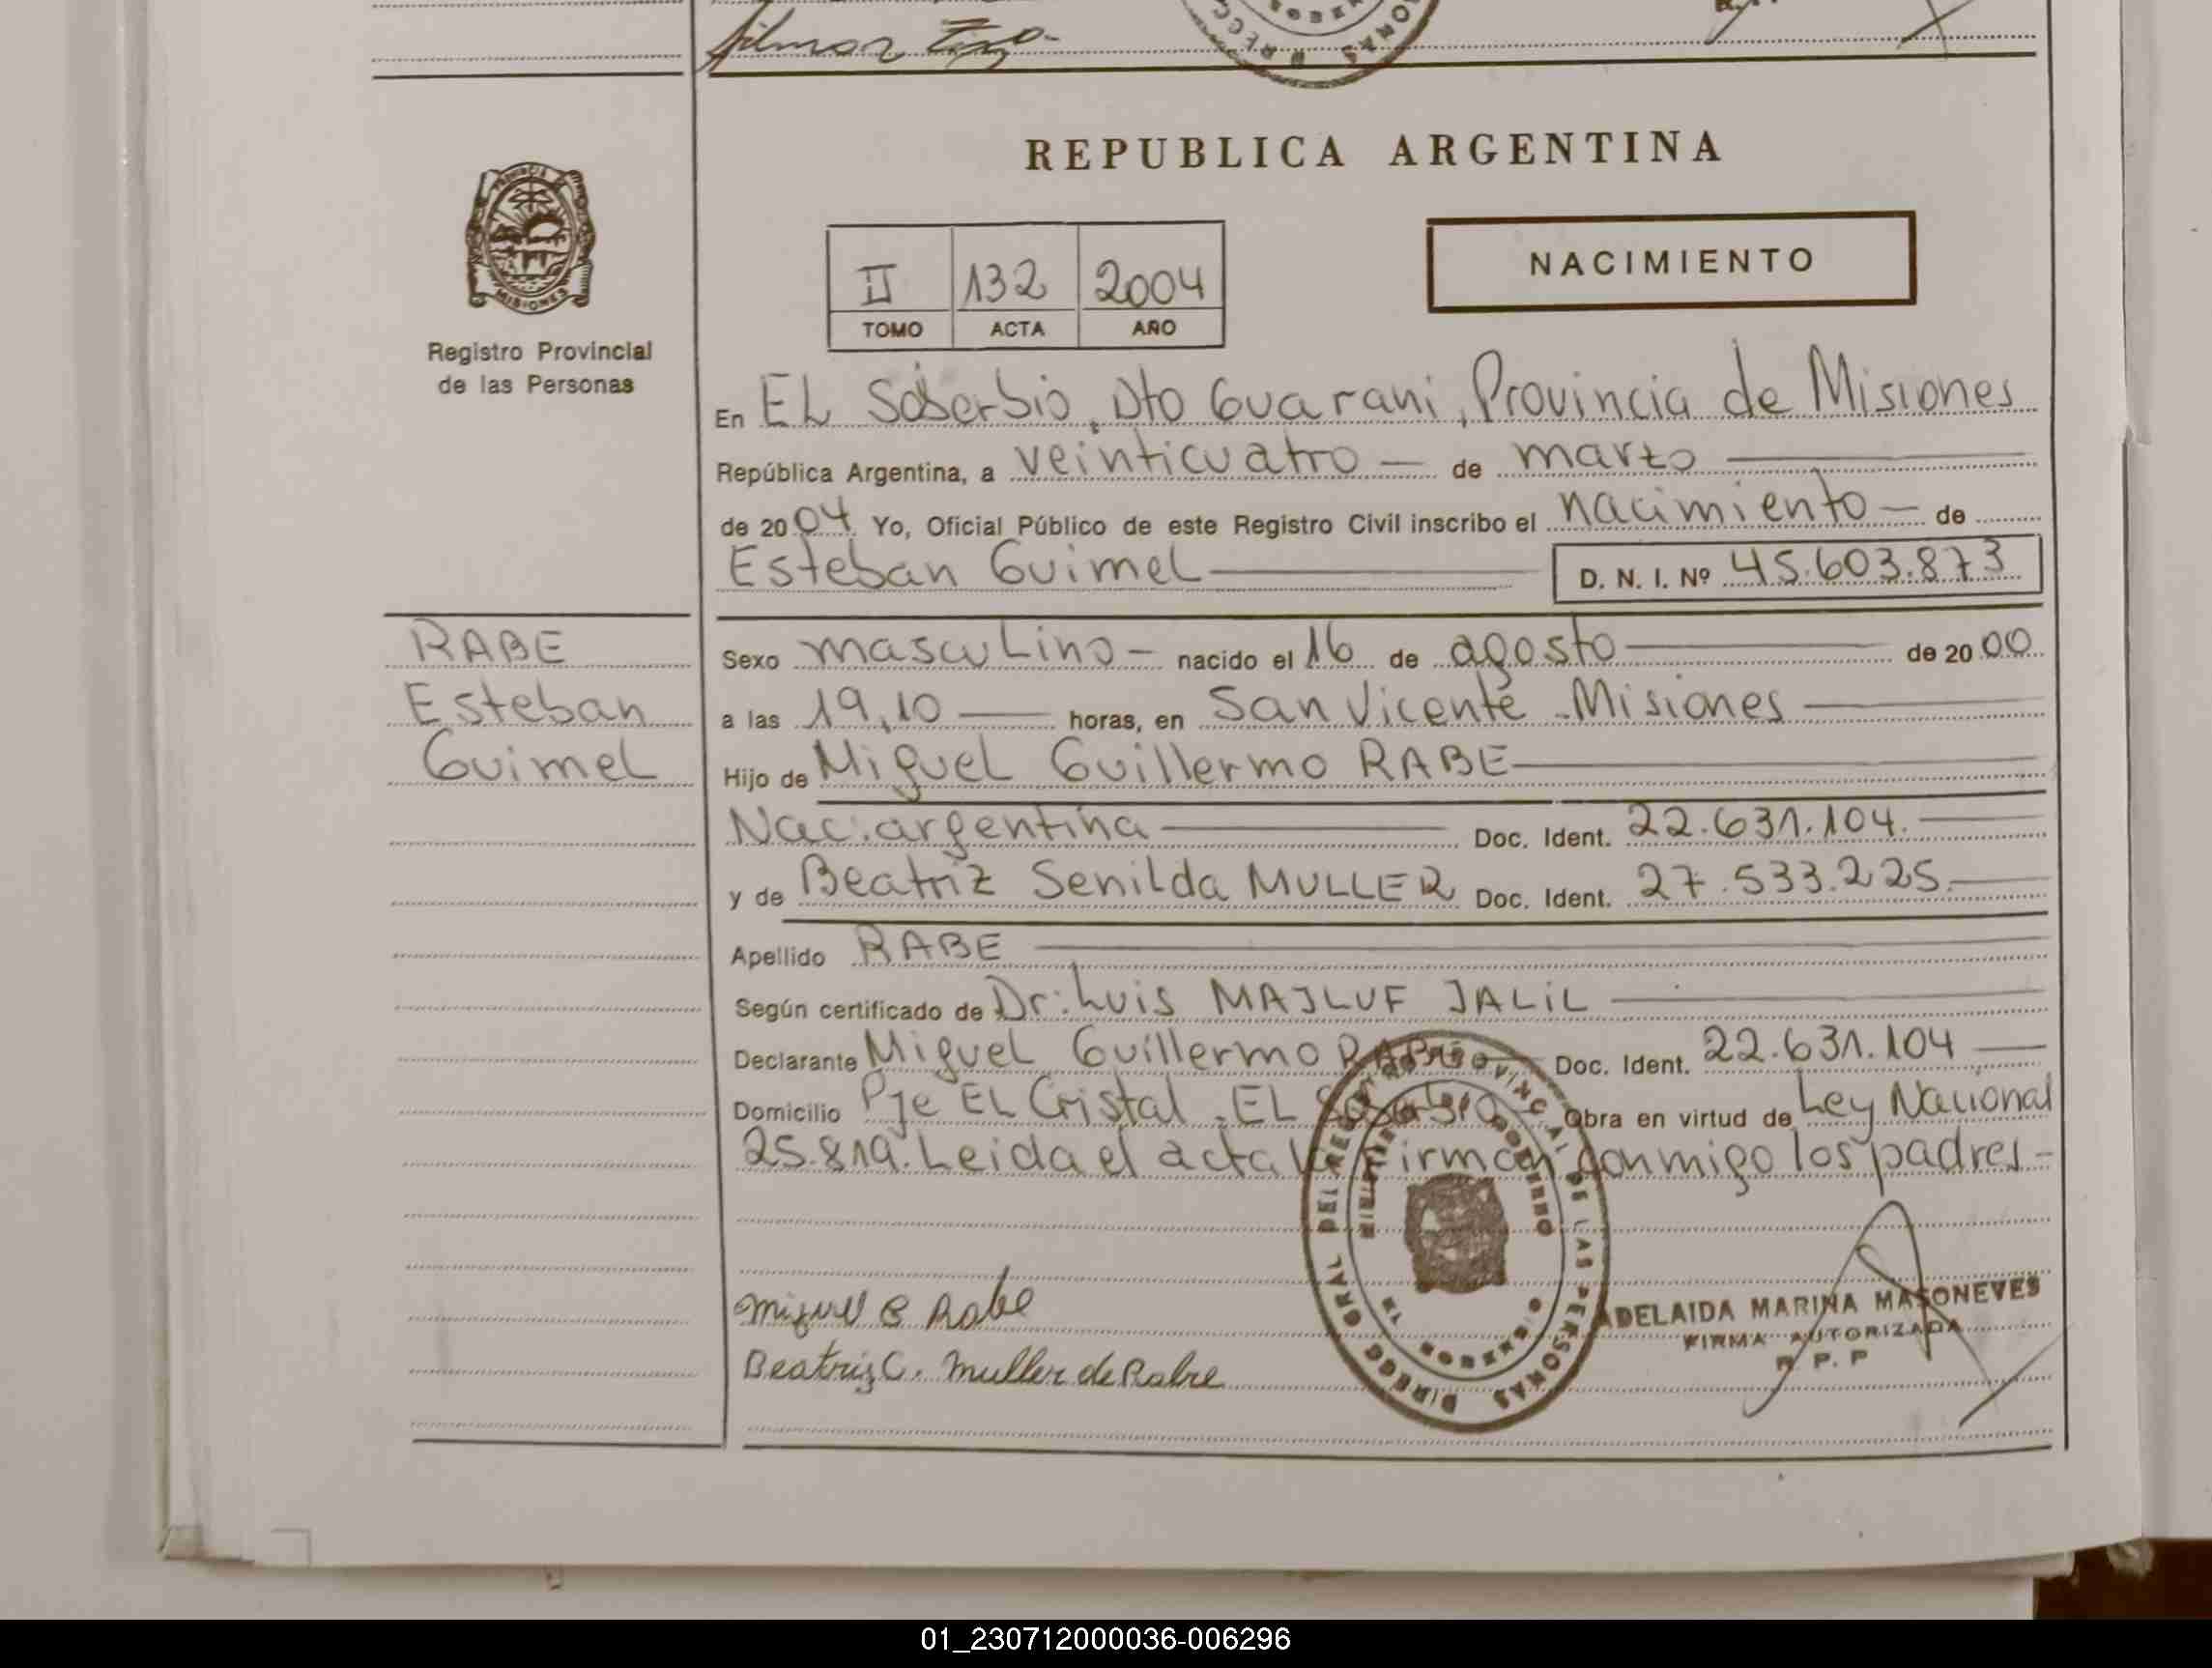 REPUBLICA ARGENTINA
PROVINCIA DE
MISIONES
Registro Provincial
de las Personas
II 132 2004
TOMO ACTA AÑO
NACIMIENTO
En EL Soberbio, Dto Guarani, Provincia de Misiones
República Argentina, a veinticuatro — de marzo —
de 2004 Yo, Oficial Público de este Registro Civil inscribo el nacimiento — de
Esteban Guimel — D. N. I. Nº 45.603.873
RABE
Esteban
Guimel
Sexo masculino — nacido el 16 de agosto — de 2000
a las 19,10 — horas, en San Vicente Misiones —
Hijo de Miguel Guillermo RABE —
Nac. argentina — Doc. Ident. 22.631.104. —
y de Beatriz Senilda MULLER Doc. Ident. 27.533.225. —
Apellido RABE —
Según certificado de Dr: Luis MAJLUF JALIL —
Declarante Miguel Guillermo RABE — Doc. Ident. 22.631.104 —
Domicilio Pje EL Cristal, EL Soberbio Obra en virtud de Ley Nacional
25.819. Leida el acta la firman conmigo los padres —
Miguel G Rabe
Beatriz C. Muller de Rabe
DIRECC GRAL DEL REGISTRO PROVINCIAL DE LAS PERSONAS
MINISTERIO DE GOBIERNO
ADELAIDA MARINA MASONEVES
FIRMA AUTORIZADA
R. P. P
01_230712000036-006296